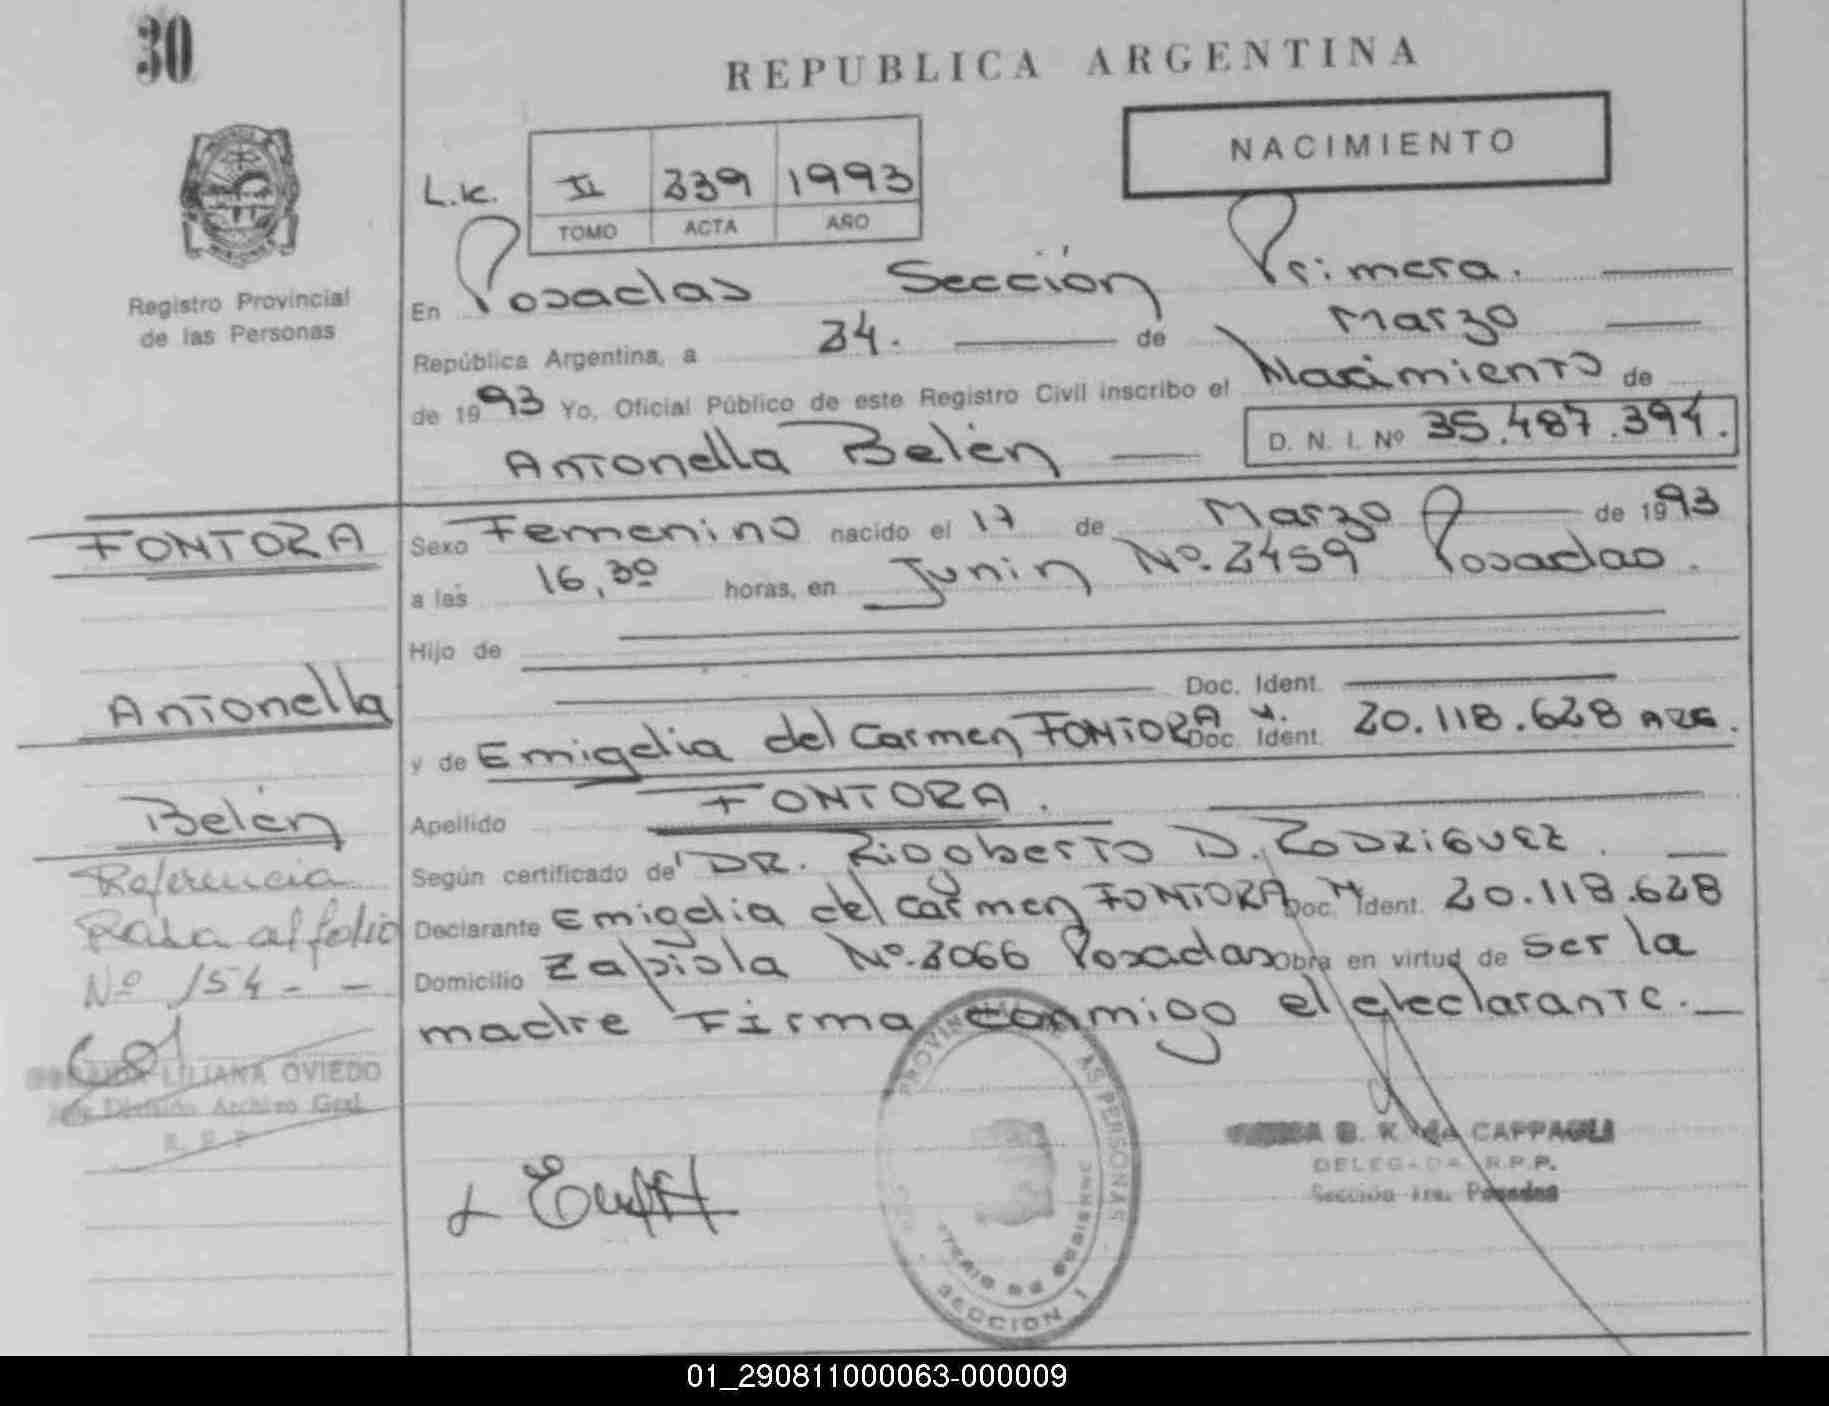 30
REPUBLICA ARGENTINA
NACIMIENTO
L.K. II 239 1993
TOMO ACTA AÑO
Registro Provincial
de las Personas
En Posadas Sección Primera.
República Argentina, a 24. de Marzo
de 1993 Yo, Oficial Público de este Registro Civil inscribo el Nacimiento de
Antonella Belén D. N. I. Nº 35.487.394.
FONTORA
Sexo Femenino nacido el 17 de Marzo de 1993
a las 16,30 horas, en Junin Nº. 2459 Posadas.
Hijo de
Doc. Ident.
Antonella
y de Emigdia del Carmen FONTORA Doc. Ident. 20.118.628 ARG.
Belén
Apellido FONTORA.
Según certificado de DR. Rigoberto D. RODRIGUEZ.
Referencia
Declarante Emigdia del Carmen FONTORA Doc. Ident. 20.118.628
Pasa al folio
Domicilio Zapiola Nº. 2066 Posadas Obra en virtud de ser la
Nº 154 - -
madre Firma conmigo el declarante.
LILIANA OVIEDO
Jefe División Archivo Gral.
R. P. P.
B. K. de CAPPAGLI
DELEGADA R.P.P.
Sección 1ra. Posadas
PROVINCIAL DE LAS PERSONAS
SECCION 1
01_290811000063-000009